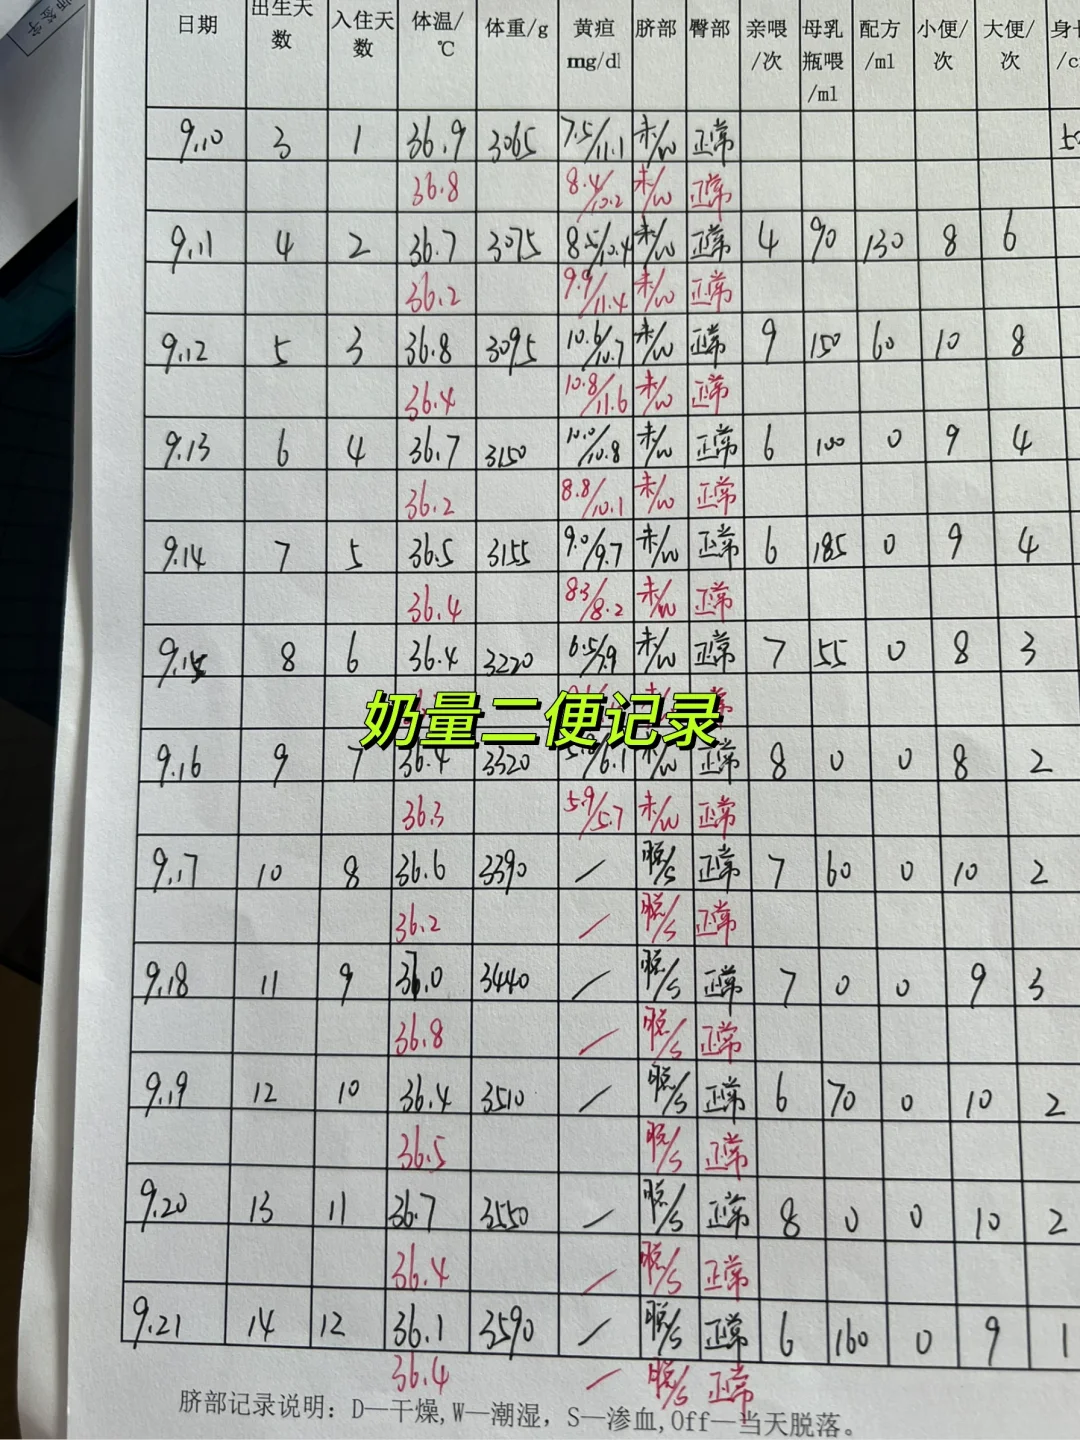 日期 出生天数 入住天数 体温/℃ 体重/g 黄疸mg/dl 脐部 臀部 亲喂/次 母乳瓶喂/ml 配方/ml 小便/次 大便/次
9.10 3 1 36.9 3065 7.5/11.1 未/W 正常
36.8 8.4/10.2 未/W 正常
9.11 4 2 36.7 3075 8.5/10.4 未/W 正常 4 90 130 8 6
36.2 9.9/11.4 未/W 正常
9.12 5 3 36.8 3095 10.6/10.7 未/W 正常 9 150 60 10 8
36.4 10.8/11.6 未/W 正常
9.13 6 4 36.7 3150 10.0/10.8 未/W 正常 6 100 0 9 4
36.2 8.8/10.1 未/W 正常
9.14 7 5 36.5 3155 9.0/9.7 未/W 正常 6 185 0 9 4
36.4 8.3/8.2 未/W 正常
9.15 8 6 36.4 3220 6.5/7.9 未/W 正常 7 55 0 8 3
奶量二便记录
9.16 9 7 36.4 3320 未/W 正常 8 0 0 8 2
36.3 5.9/5.7 未/W 正常
9.17 10 8 36.6 3390 / 脱/S 正常 7 60 0 10 2
36.2 / 脱/S 正常
9.18 11 9 36.0 3440 / 脱/S 正常 7 0 0 9 3
36.8 / 脱/S 正常
9.19 12 10 36.4 3510 / 脱/S 正常 6 70 0 10 2
36.5 脱/S 正常
9.20 13 11 36.7 3550 / 脱/S 正常 8 0 0 10 2
36.4 / 脱/S 正常
9.21 14 12 36.1 3590 / 脱/S 正常 6 160 0 9 1
36.4 / 脱/S 正常
脐部记录说明：D—干燥,W—潮湿，S—渗血,Off—当天脱落。